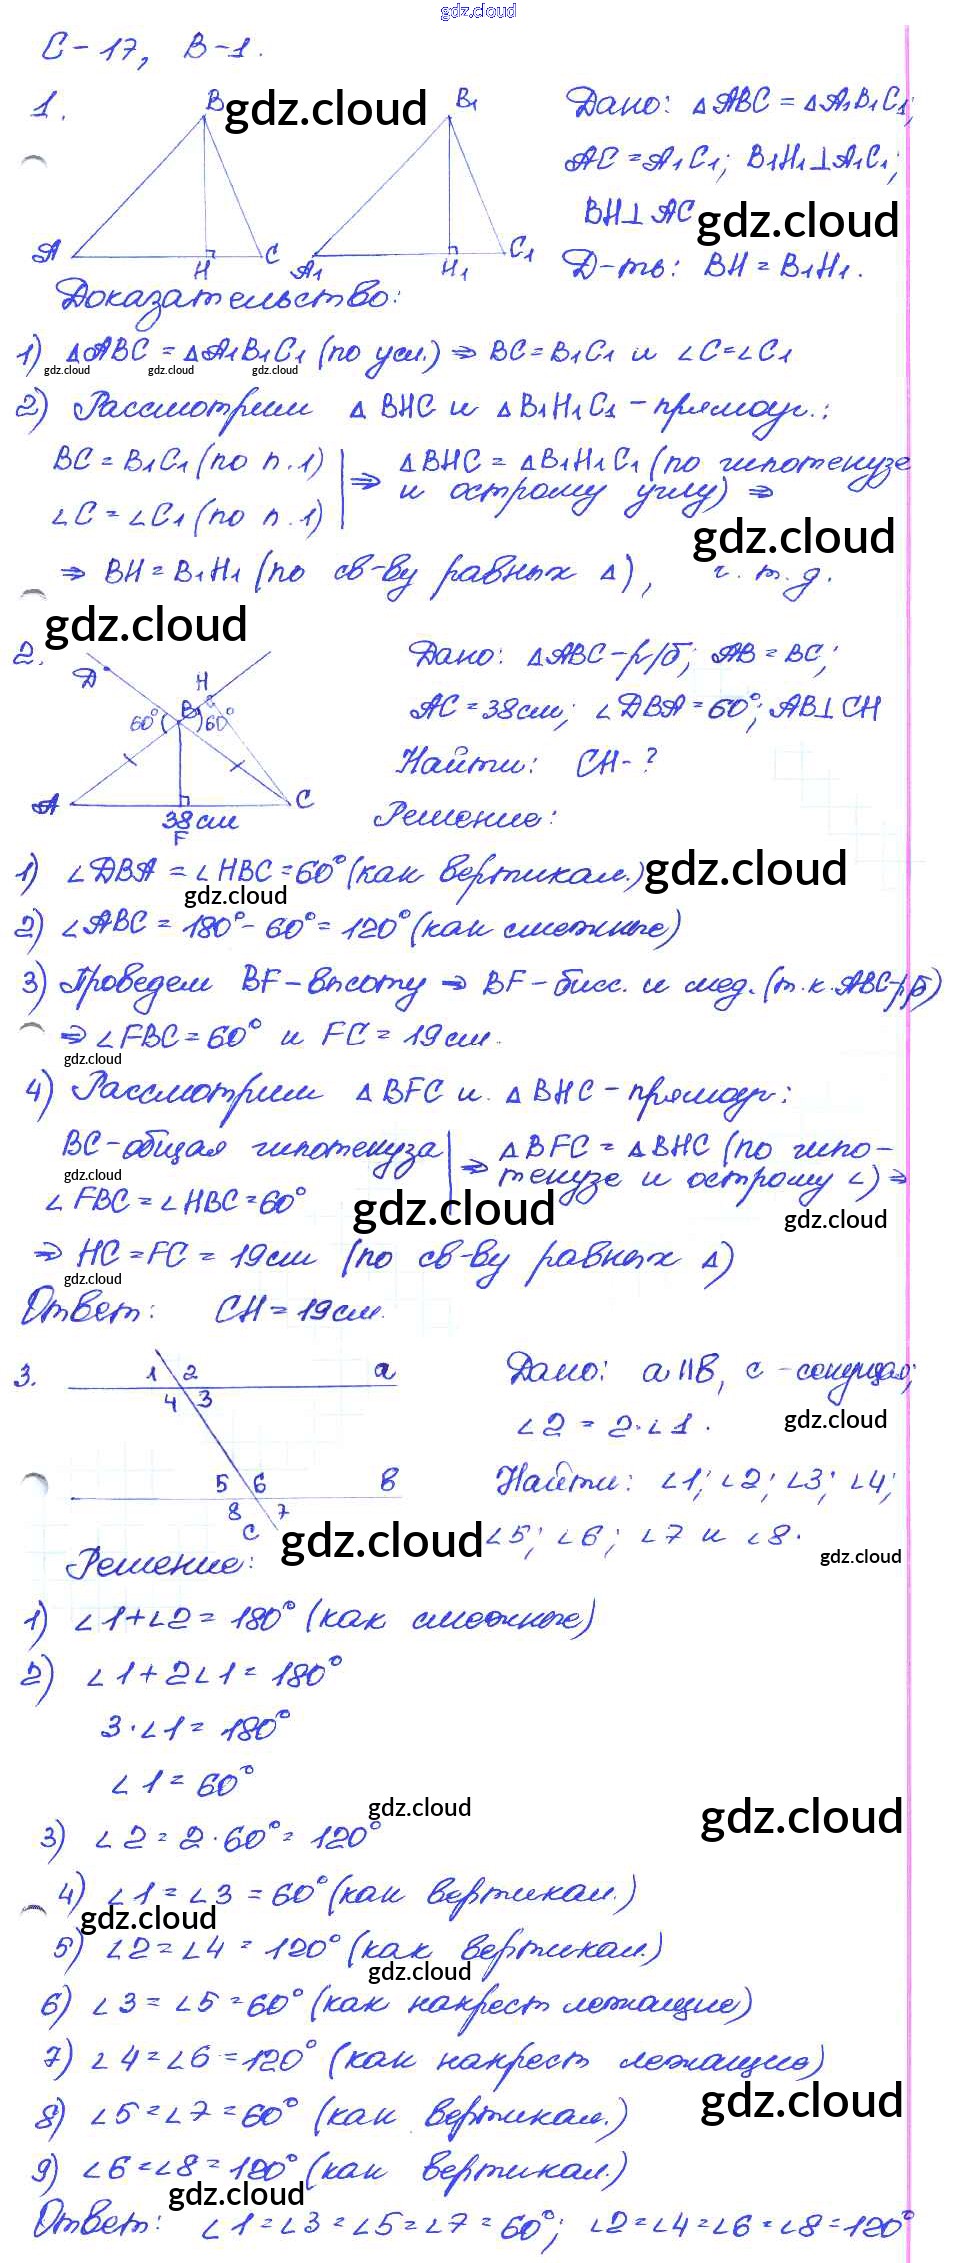 gdz.cloud
С-17, В-1.
1.
B
gdz.cloud
B₁
Дано: △ABC = △A₁B₁C₁;
AC = A₁C₁; B₁H₁⊥A₁C₁;
BH⊥AC
gdz.cloud
A H C A₁ H₁ C₁
Д-ть: BH = B₁H₁.
Доказательство:
1) △ABC = △A₁B₁C₁ (по усл.) ⇒ BC = B₁C₁ и ∠C = ∠C₁
gdz.cloud gdz.cloud gdz.cloud
2) Рассмотрим △BHC и △B₁H₁C₁ - прямоуг.:
BC = B₁C₁ (по п.1) | ⇒ △BHC = △B₁H₁C₁ (по гипотенузе
∠C = ∠C₁ (по п.1) | и острому углу) ⇒
gdz.cloud
⇒ BH = B₁H₁ (по св-ву равных △), ч.т.д.
gdz.cloud
2.
D H
60° B 60°
A C
38 см
F
Дано: △ABC - р/б; AB = BC;
AC = 38 см; ∠DBA = 60°; AB⊥CH
Найти: CH - ?
Решение:
1) ∠DBA = ∠HBC = 60° (как вертикал.)
gdz.cloud
gdz.cloud
2) ∠ABC = 180° - 60° = 120° (как смежные)
3) Проведем BF - высоту ⇒ BF - бисс. и мед. (т.к. ABC - р/б)
⇒ ∠FBC = 60° и FC = 19 см.
gdz.cloud
4) Рассмотрим △BFC и △BHC - прямоуг:
BC - общая гипотенуза | ⇒ △BFC = △BHC (по гипо-
gdz.cloud
∠FBC = ∠HBC = 60° | тенузе и острому ∠) ⇒
gdz.cloud
gdz.cloud
⇒ HC = FC = 19 см (по св-ву равных △)
gdz.cloud
Ответ: CH = 19 см.
3.
1 2 a
4 3
5 6 в
8 7
c
Дано: a || в, c - секущая;
gdz.cloud
∠2 = 2·∠1.
Найти: ∠1; ∠2; ∠3; ∠4;
gdz.cloud
∠5; ∠6; ∠7 и ∠8.
gdz.cloud
Решение:
1) ∠1 + ∠2 = 180° (как смежные)
2) ∠1 + 2∠1 = 180°
3·∠1 = 180°
∠1 = 60°
gdz.cloud
gdz.cloud
3) ∠2 = 2·60° = 120°
4) ∠1 = ∠3 = 60° (как вертикал.)
gdz.cloud
5) ∠2 = ∠4 = 120° (как вертикал.)
gdz.cloud
6) ∠3 = ∠5 = 60° (как накрест лежащие)
7) ∠4 = ∠6 = 120° (как накрест лежащие)
gdz.cloud
8) ∠5 = ∠7 = 60° (как вертикал.)
9) ∠6 = ∠8 = 120° (как вертикал.)
gdz.cloud
Ответ: ∠1 = ∠3 = ∠5 = ∠7 = 60°; ∠2 = ∠4 = ∠6 = ∠8 = 120°